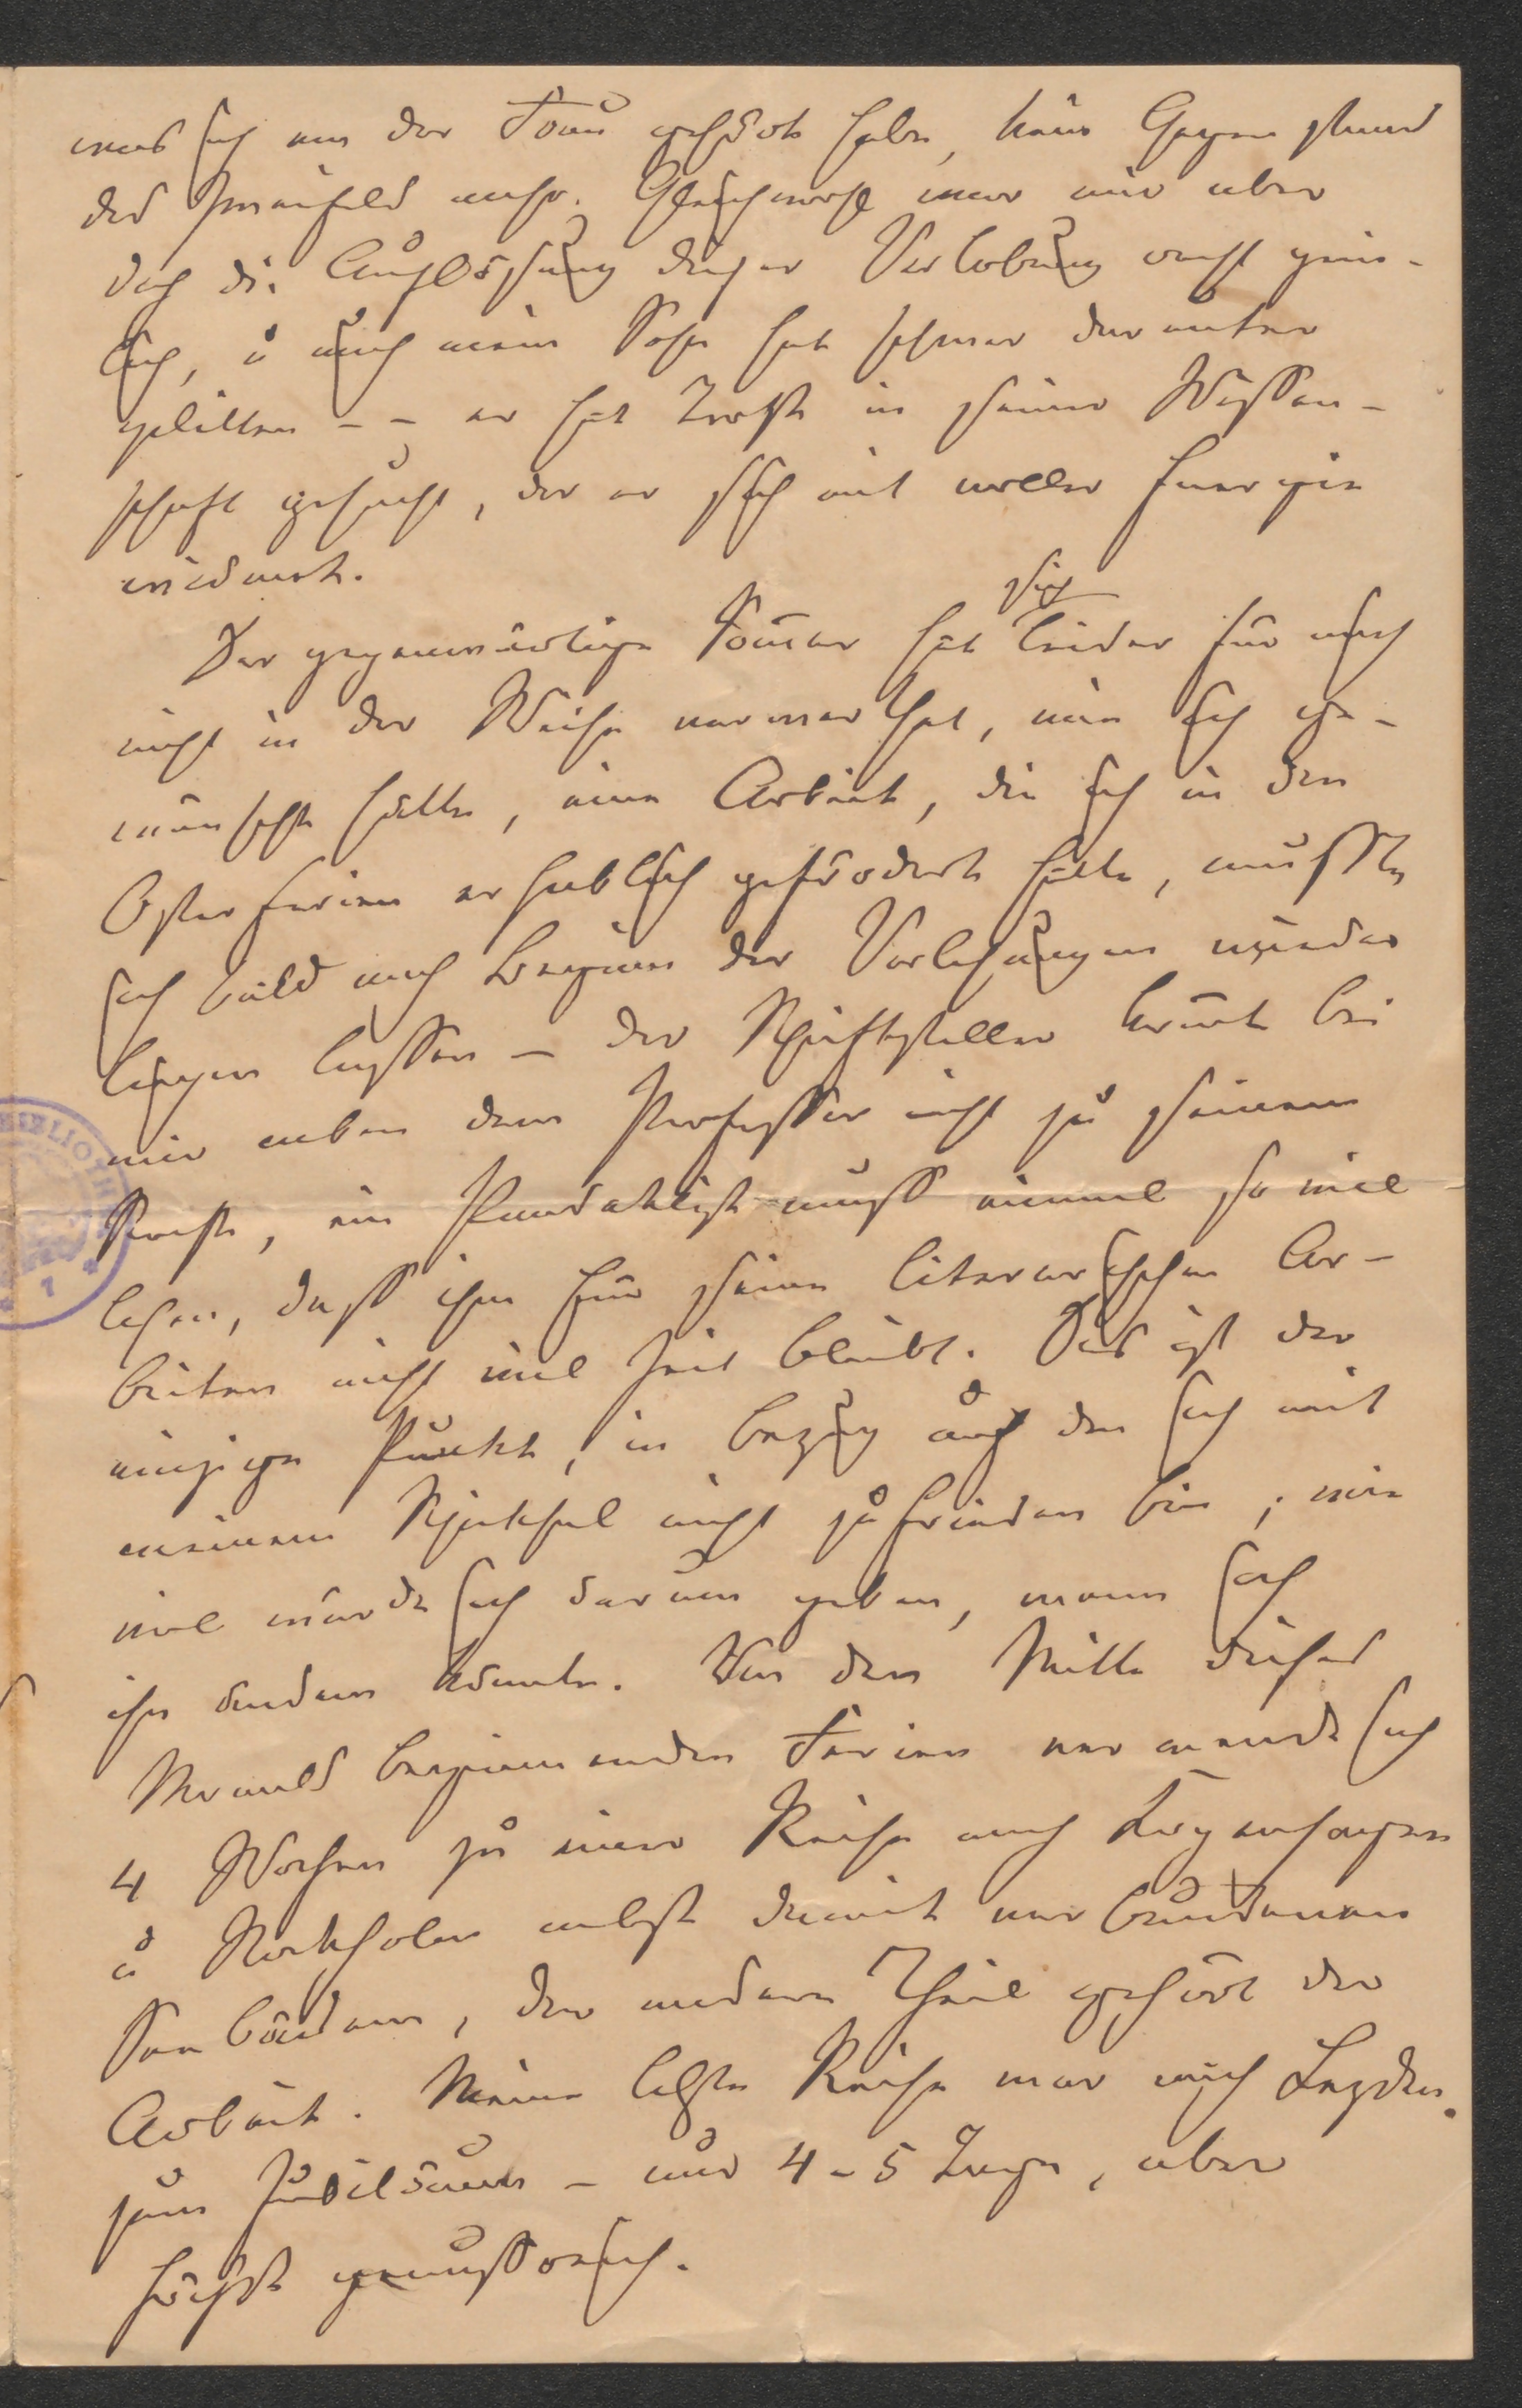 was ich von der Frau gehört habe, kein Gegenstand
des Zweifels mehr. Gleichwohl war mir aber
doch die Auflösung dieser Verlobung recht pein-
lich, u auch mein Sohn hat schwer darunter
gelitten - - er hat Trost in seiner Wissen-
schaft gesucht, der er sich mit voller Energie
widmet.
Der gegenwärtige Somer hat sich leider für mich
nicht in der Weise verwerthet, wie ich ge-
wünscht hätte, eine Arbeit, die ich in den
Osterferien erheblich gefördert hatte, musste
ich bald nach Beginn der Vorlesungen wieder
liegen lassen - der Schriftsteller komt bei
mir neben dem Professor nicht zu seinem
Rechte, ein Pandektist muss einmal so viel
lesen, dass ihm für seine literarischen Ar-
beiten nicht viel Zeit bleibt. Das ist der
einzige Punkt, in Bezug auf den ich mit
meinem Schicksal nicht zufrieden bin; wie
viel würde ich darum geben, wenn ich
ihn ändern könnte. Von den Mitte dieses
Monats beginnenden Ferien verwende ich
4 Wochen zu einer Reise nach Kopenhagen
u Stockholm nebst damit verbundenen
Seebädern, der andere Theil gehört der
Arbeit. Meine letzte Reise war nach Leyden
zum Jubiläum - nur 4-5 Tage, aber
höchst genussreich.